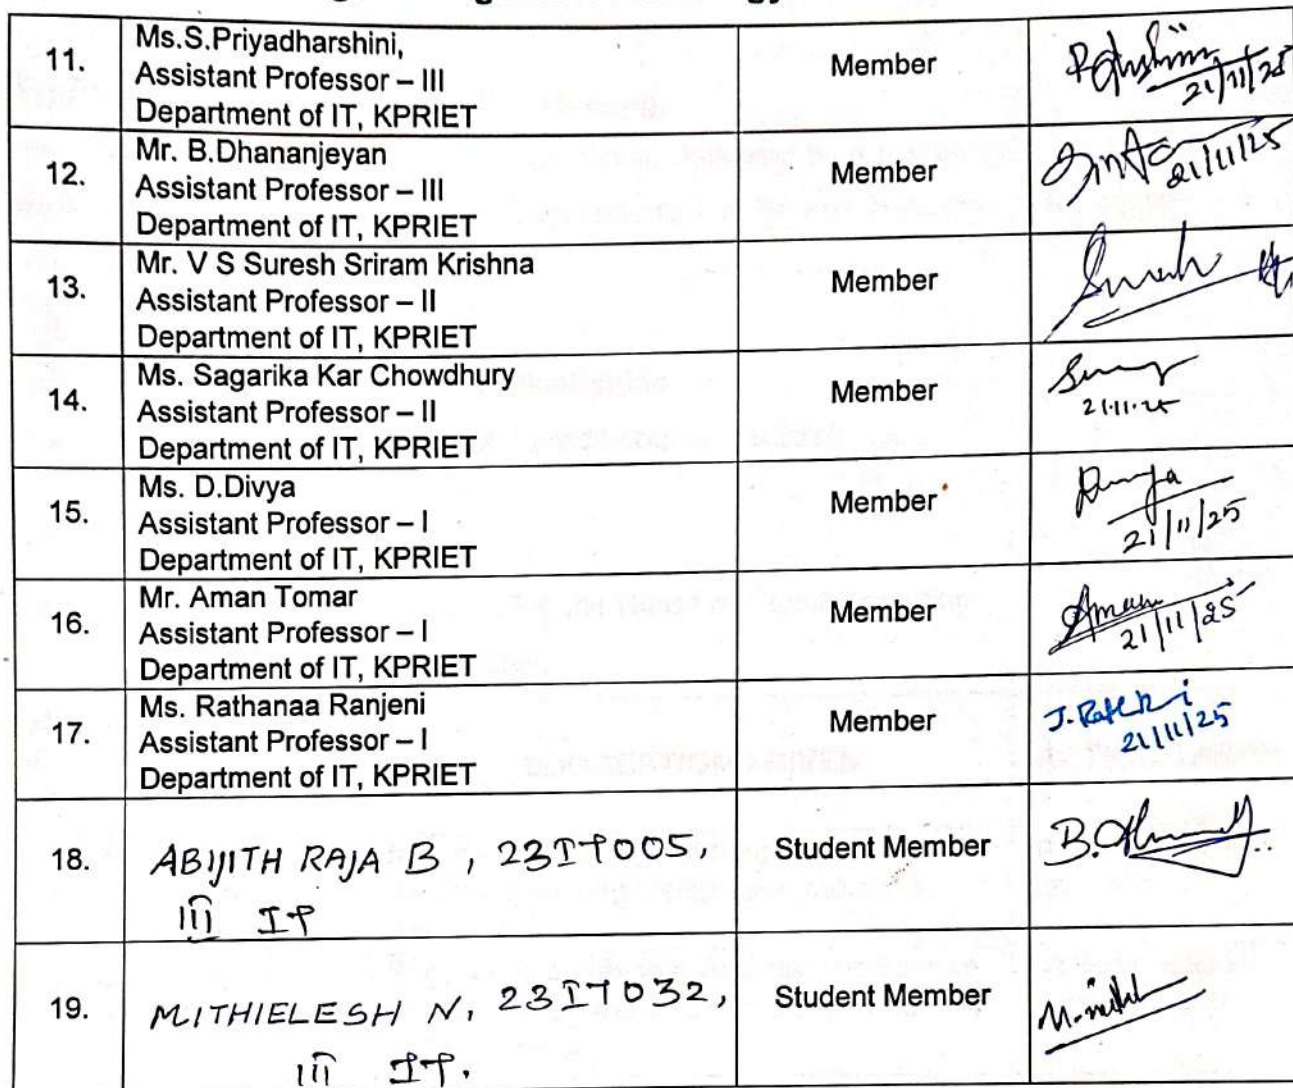 11.
Ms.S.Priyadharshini,
Assistant Professor – III
Department of IT, KPRIET
Member
21/11/25
12.
Mr. B.Dhananjeyan
Assistant Professor – III
Department of IT, KPRIET
Member
21/11/25
13.
Mr. V S Suresh Sriram Krishna
Assistant Professor – II
Department of IT, KPRIET
Member
14.
Ms. Sagarika Kar Chowdhury
Assistant Professor – II
Department of IT, KPRIET
Member
21.11.25
15.
Ms. D.Divya
Assistant Professor – I
Department of IT, KPRIET
Member
Divya
21/11/25
16.
Mr. Aman Tomar
Assistant Professor – I
Department of IT, KPRIET
Member
Aman
21/11/25
17.
Ms. Rathanaa Ranjeni
Assistant Professor – I
Department of IT, KPRIET
Member
21/11/25
18.
ABIJITH RAJA B , 23IT005,
III IT
Student Member
19.
MITHIELESH N, 23IT032,
III IT.
Student Member